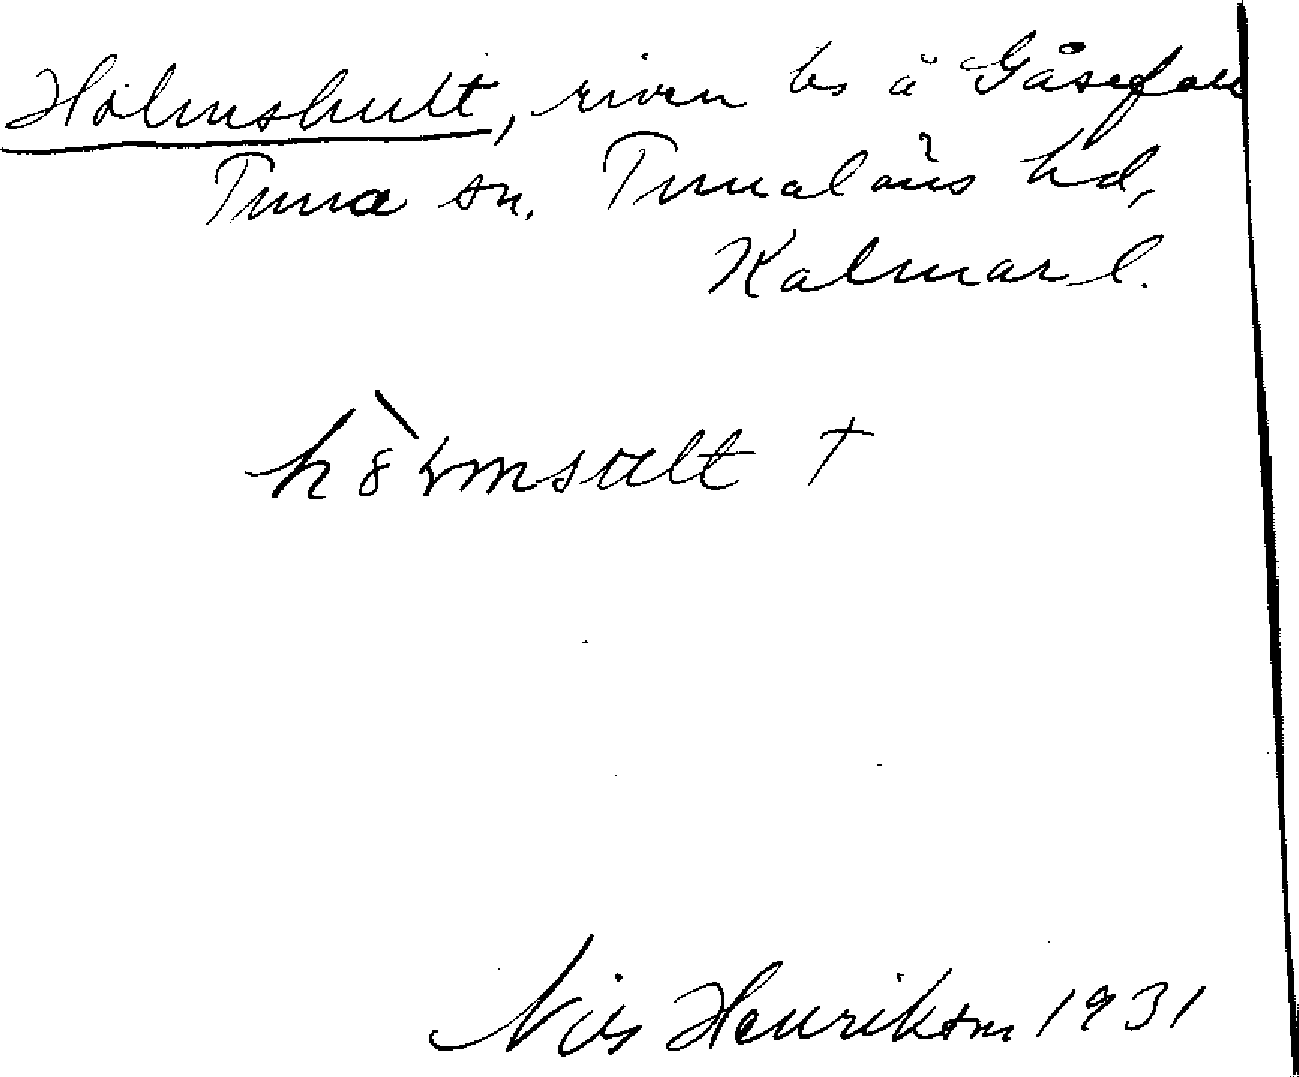 Holmshult, riven bs å Gåsefall
Tuna sn. Tunaläns hd,
Kalmar l.
hò̀lmsult †
Nils Henrikson 1931